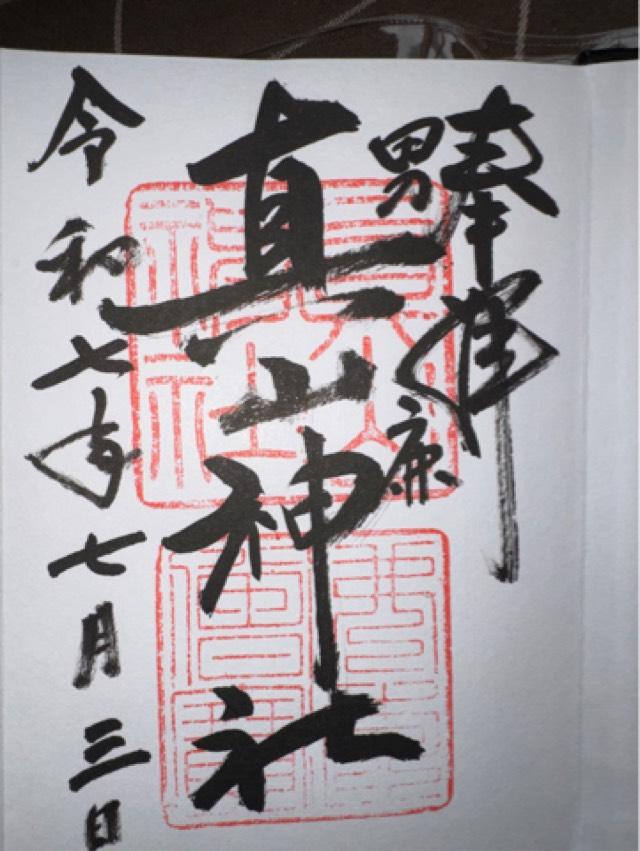 奉拝
男鹿
真山神社
令和七年七月三日